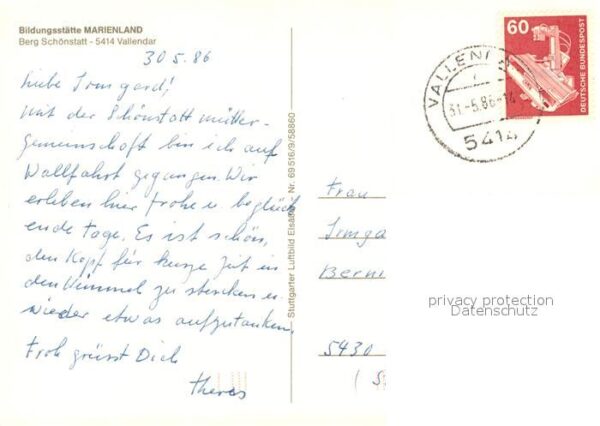 Bildungsstätte MARIENLAND
Berg Schönstatt - 5414 Vallendar
30 5. 86
Liebe Irmgard!
Mit der Schönstatt mütter-
gemeinschaft bin ich auf
Wallfahrt gegangen. Wir
erleben hier frohe u. beglück
ende Tage. Es ist schön,
den Kopf für kurze Zeit in
den Himmel zu stecken u.
wieder etwas aufzutanken.
Froh grüsst Dich
Theres
Stuttgarter Luftbild Elsäßer Nr. 69516/9/58860
60
DEUTSCHE BUNDESPOST
VALLEN
31.-5.86-14
5414
Frau
Irmga
Berni
5430
privacy protection
Datenschutz